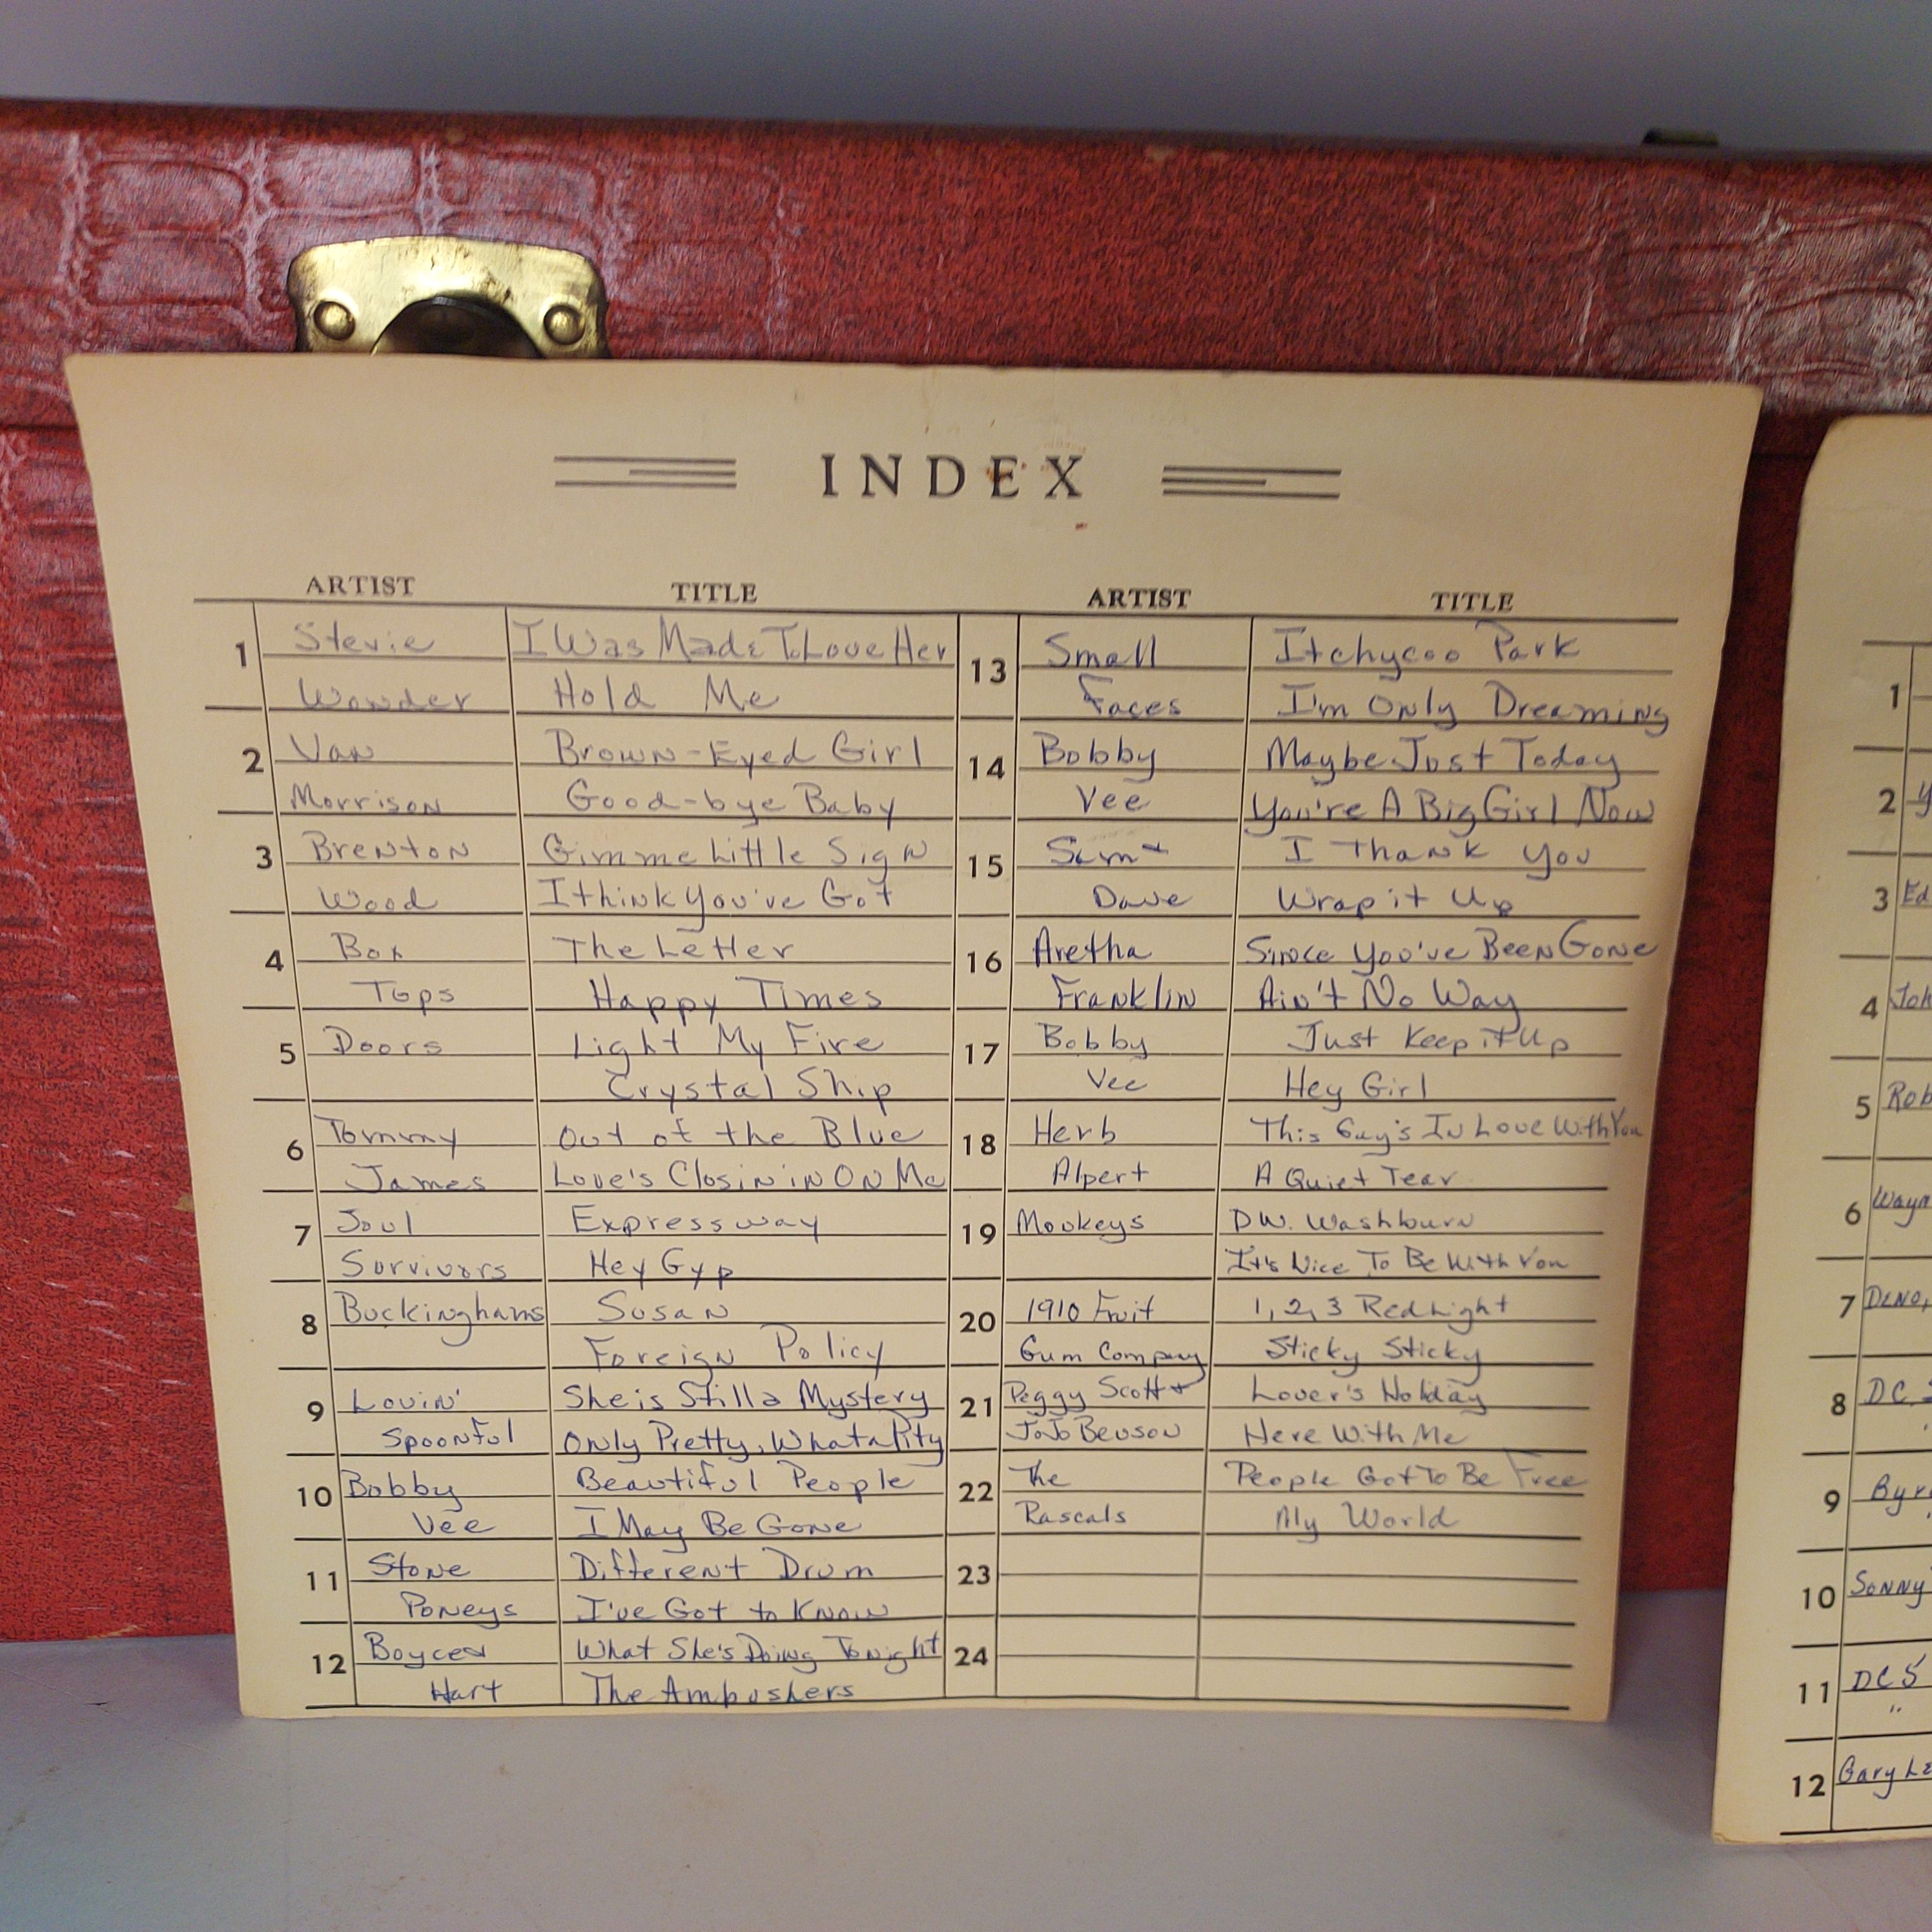 INDEX
ARTIST TITLE ARTIST TITLE
1 Stevie I Was Made To Love Her
Wonder Hold Me
2 Van Brown-Eyed Girl
Morrison Good-bye Baby
3 Brenton Gimme Little Sign
Wood I think You've Got
4 Box The Letter
Tops Happy Times
5 Doors Light My Fire
Crystal Ship
6 Tommy Out of the Blue
James Love's Closin in On Me
7 Soul Expressway
Survivors Hey Gyp
8 Buckinghams Susan
Foreign Policy
9 Lovin' She is Still a Mystery
Spoonful Only Pretty, What a Pity
10 Bobby Beautiful People
Vee I May Be Gone
11 Stone Different Drum
Poneys I've Got to Know
12 Boyce & What She's Doing Tonight
Hart The Ambushers
13 Small Itchycoo Park
Faces I'm Only Dreaming
14 Bobby Maybe Just Today
Vee You're A Big Girl Now
15 Sam & I Thank You
Dave Wrap it Up
16 Aretha Since You've Been Gone
Franklin Ain't No Way
17 Bobby Just Keep it Up
Vee Hey Girl
18 Herb This Guy's In Love With You
Alpert A Quiet Tear
19 Monkeys D.W. Washburn
It's Nice To Be With You
20 1910 Fruit 1, 2, 3 Red Light
Gum Company Sticky Sticky
21 Peggy Scott & Lover's Holiday
JoJo Benson Here With Me
22 The People Got To Be Free
Rascals My World
23
24
1
2 Y
3 Ed
4 Joh
5 Rob
6 Wayn
7 Dino,
8 DC
9 Byr
10 Sonny
11 DC 5
"
12 Gary Le